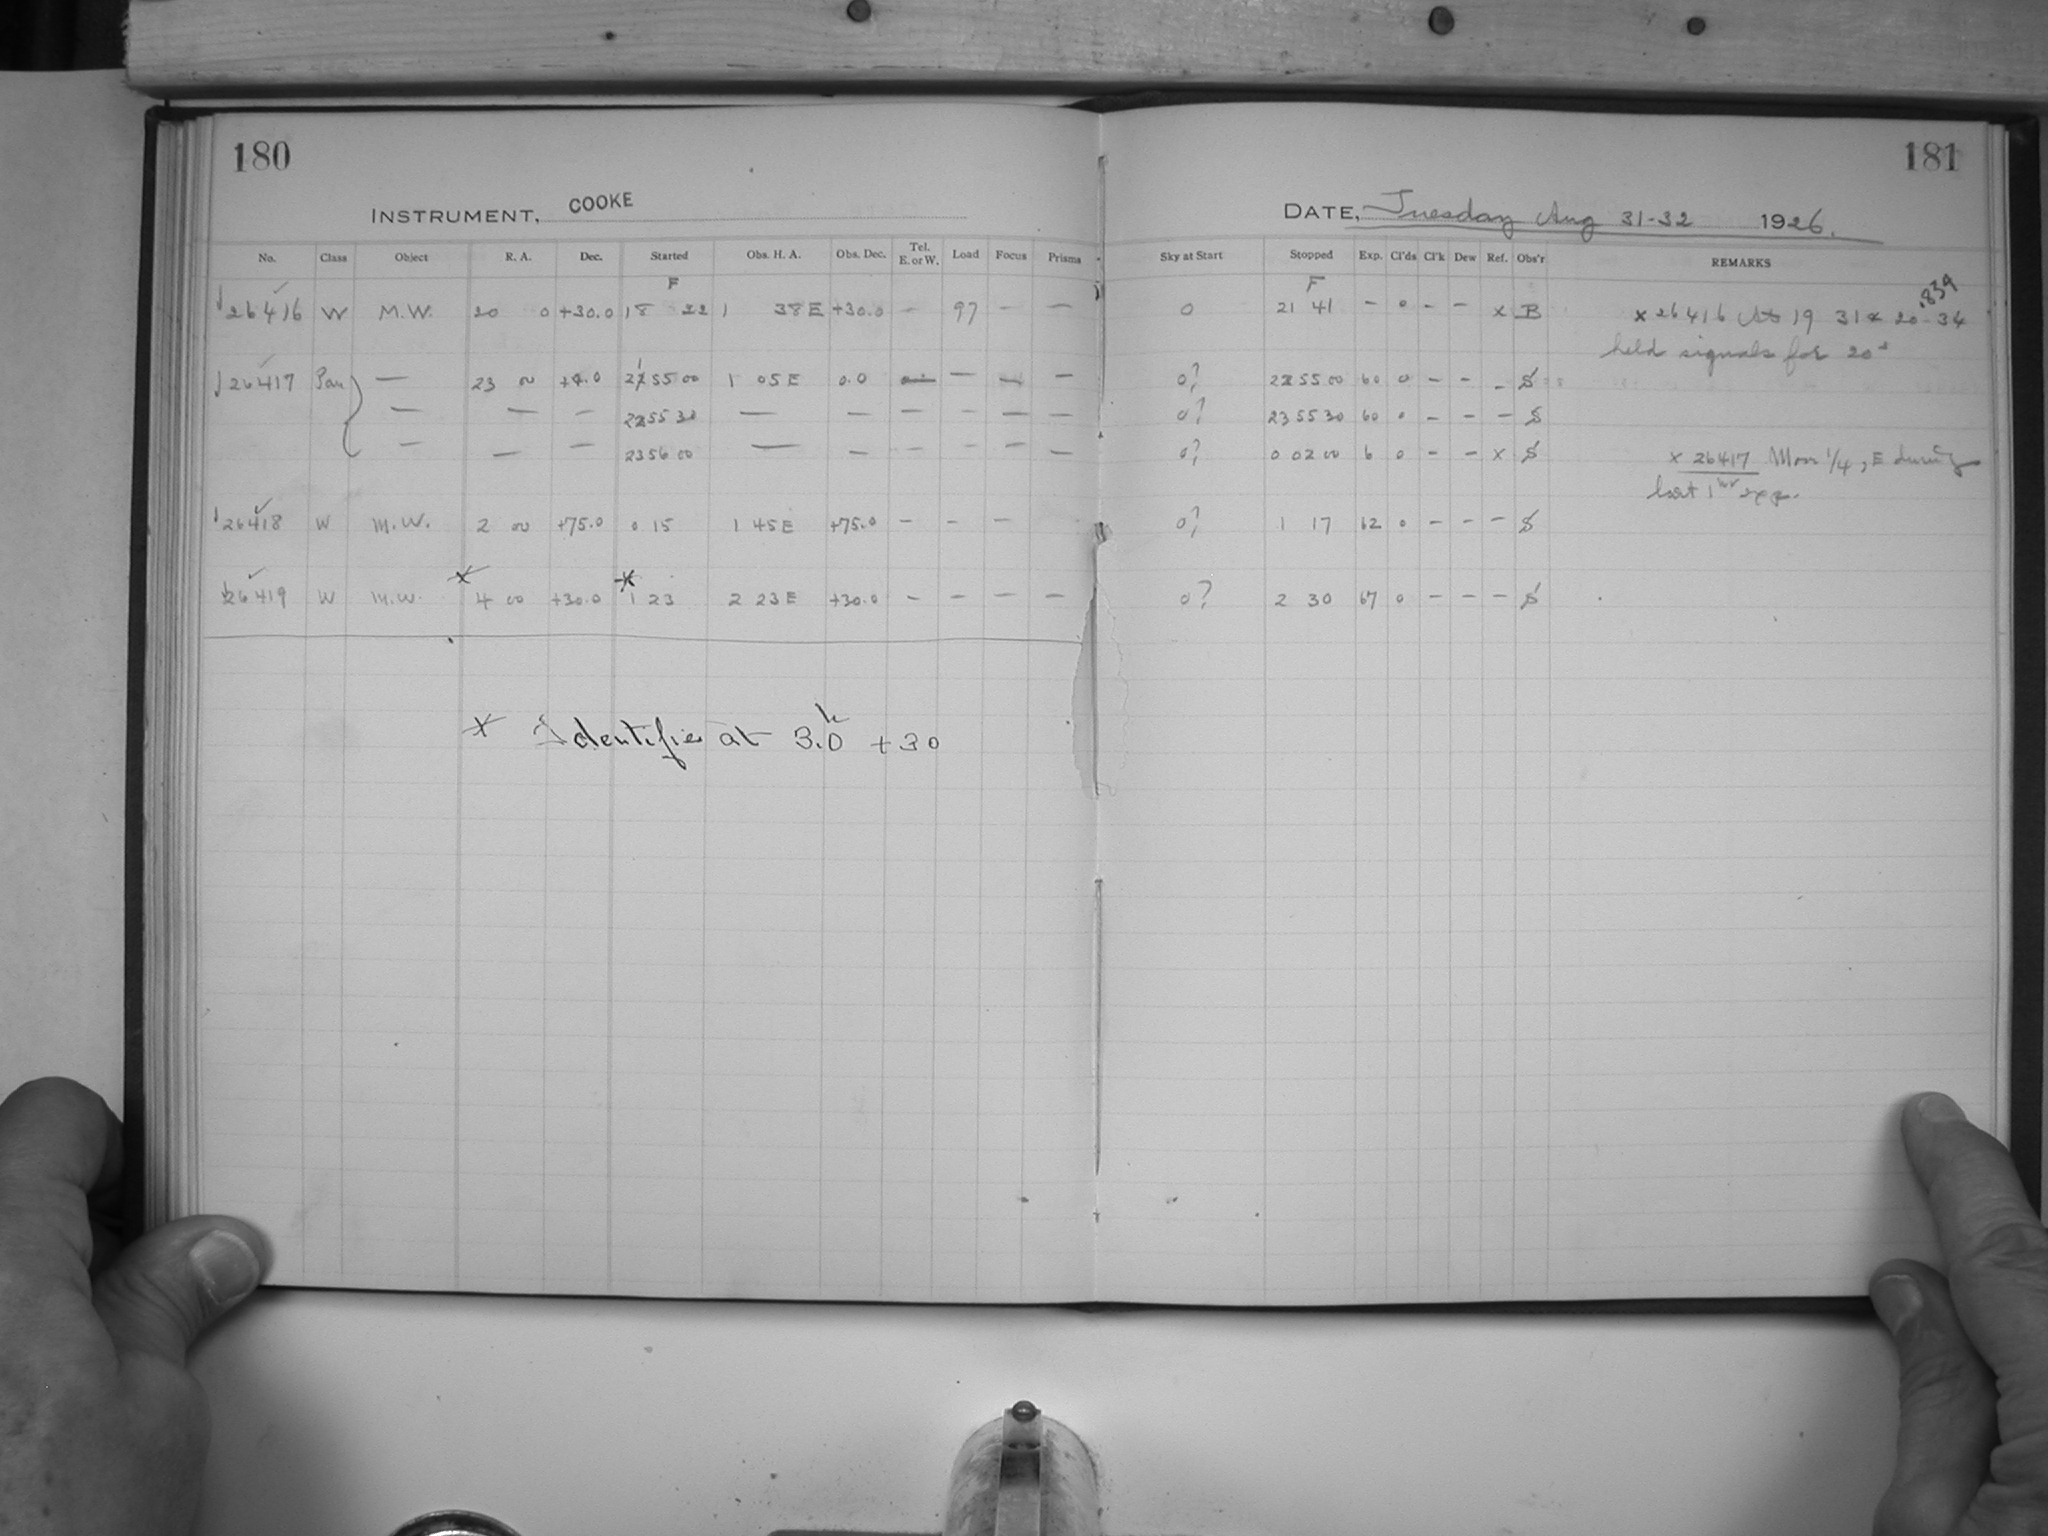 180
INSTRUMENT, COOKE
No. Class Object R. A. Dec. Started Obs. H. A. Obs. Dec. Tel. E. or W. Load Focus Prisms
F
26416 W M.W. 20 0 +30.0 18 22 1 38 E +30.0 - 97 - -
26417 Pan — 23 00 +0.0 2155 00 1 05 E 0.0 — — — —
— — — 2255 30 — — — — — —
— — — 2356 00 — — — — — —
26418 W M.W. 2 00 +75.0 0 15 1 45 E +75.0 - - - -
* *
26419 W M.W. 4 00 +30.0 1 23 2 23 E +30.0 - - - -
* Identifie at 3.0h +30
181
DATE, Tuesday Aug 31-32 1926.
Sky at Start Stopped Exp. Cl'ds Cl'k Dew Ref. Obs'r REMARKS
F
0 21 41 - 0 - - x B x 26416 At 19 31 & 20 34 .839
held signals for 20s
0? 2255 00 60 0 - - - S
0? 2355 30 60 0 - - - S
0? 0 02 00 6 0 - - x S x 26417 Moon 1/4, E during
last 1hr exp.
0? 1 17 62 0 - - - S
0? 2 30 67 0 - - - S